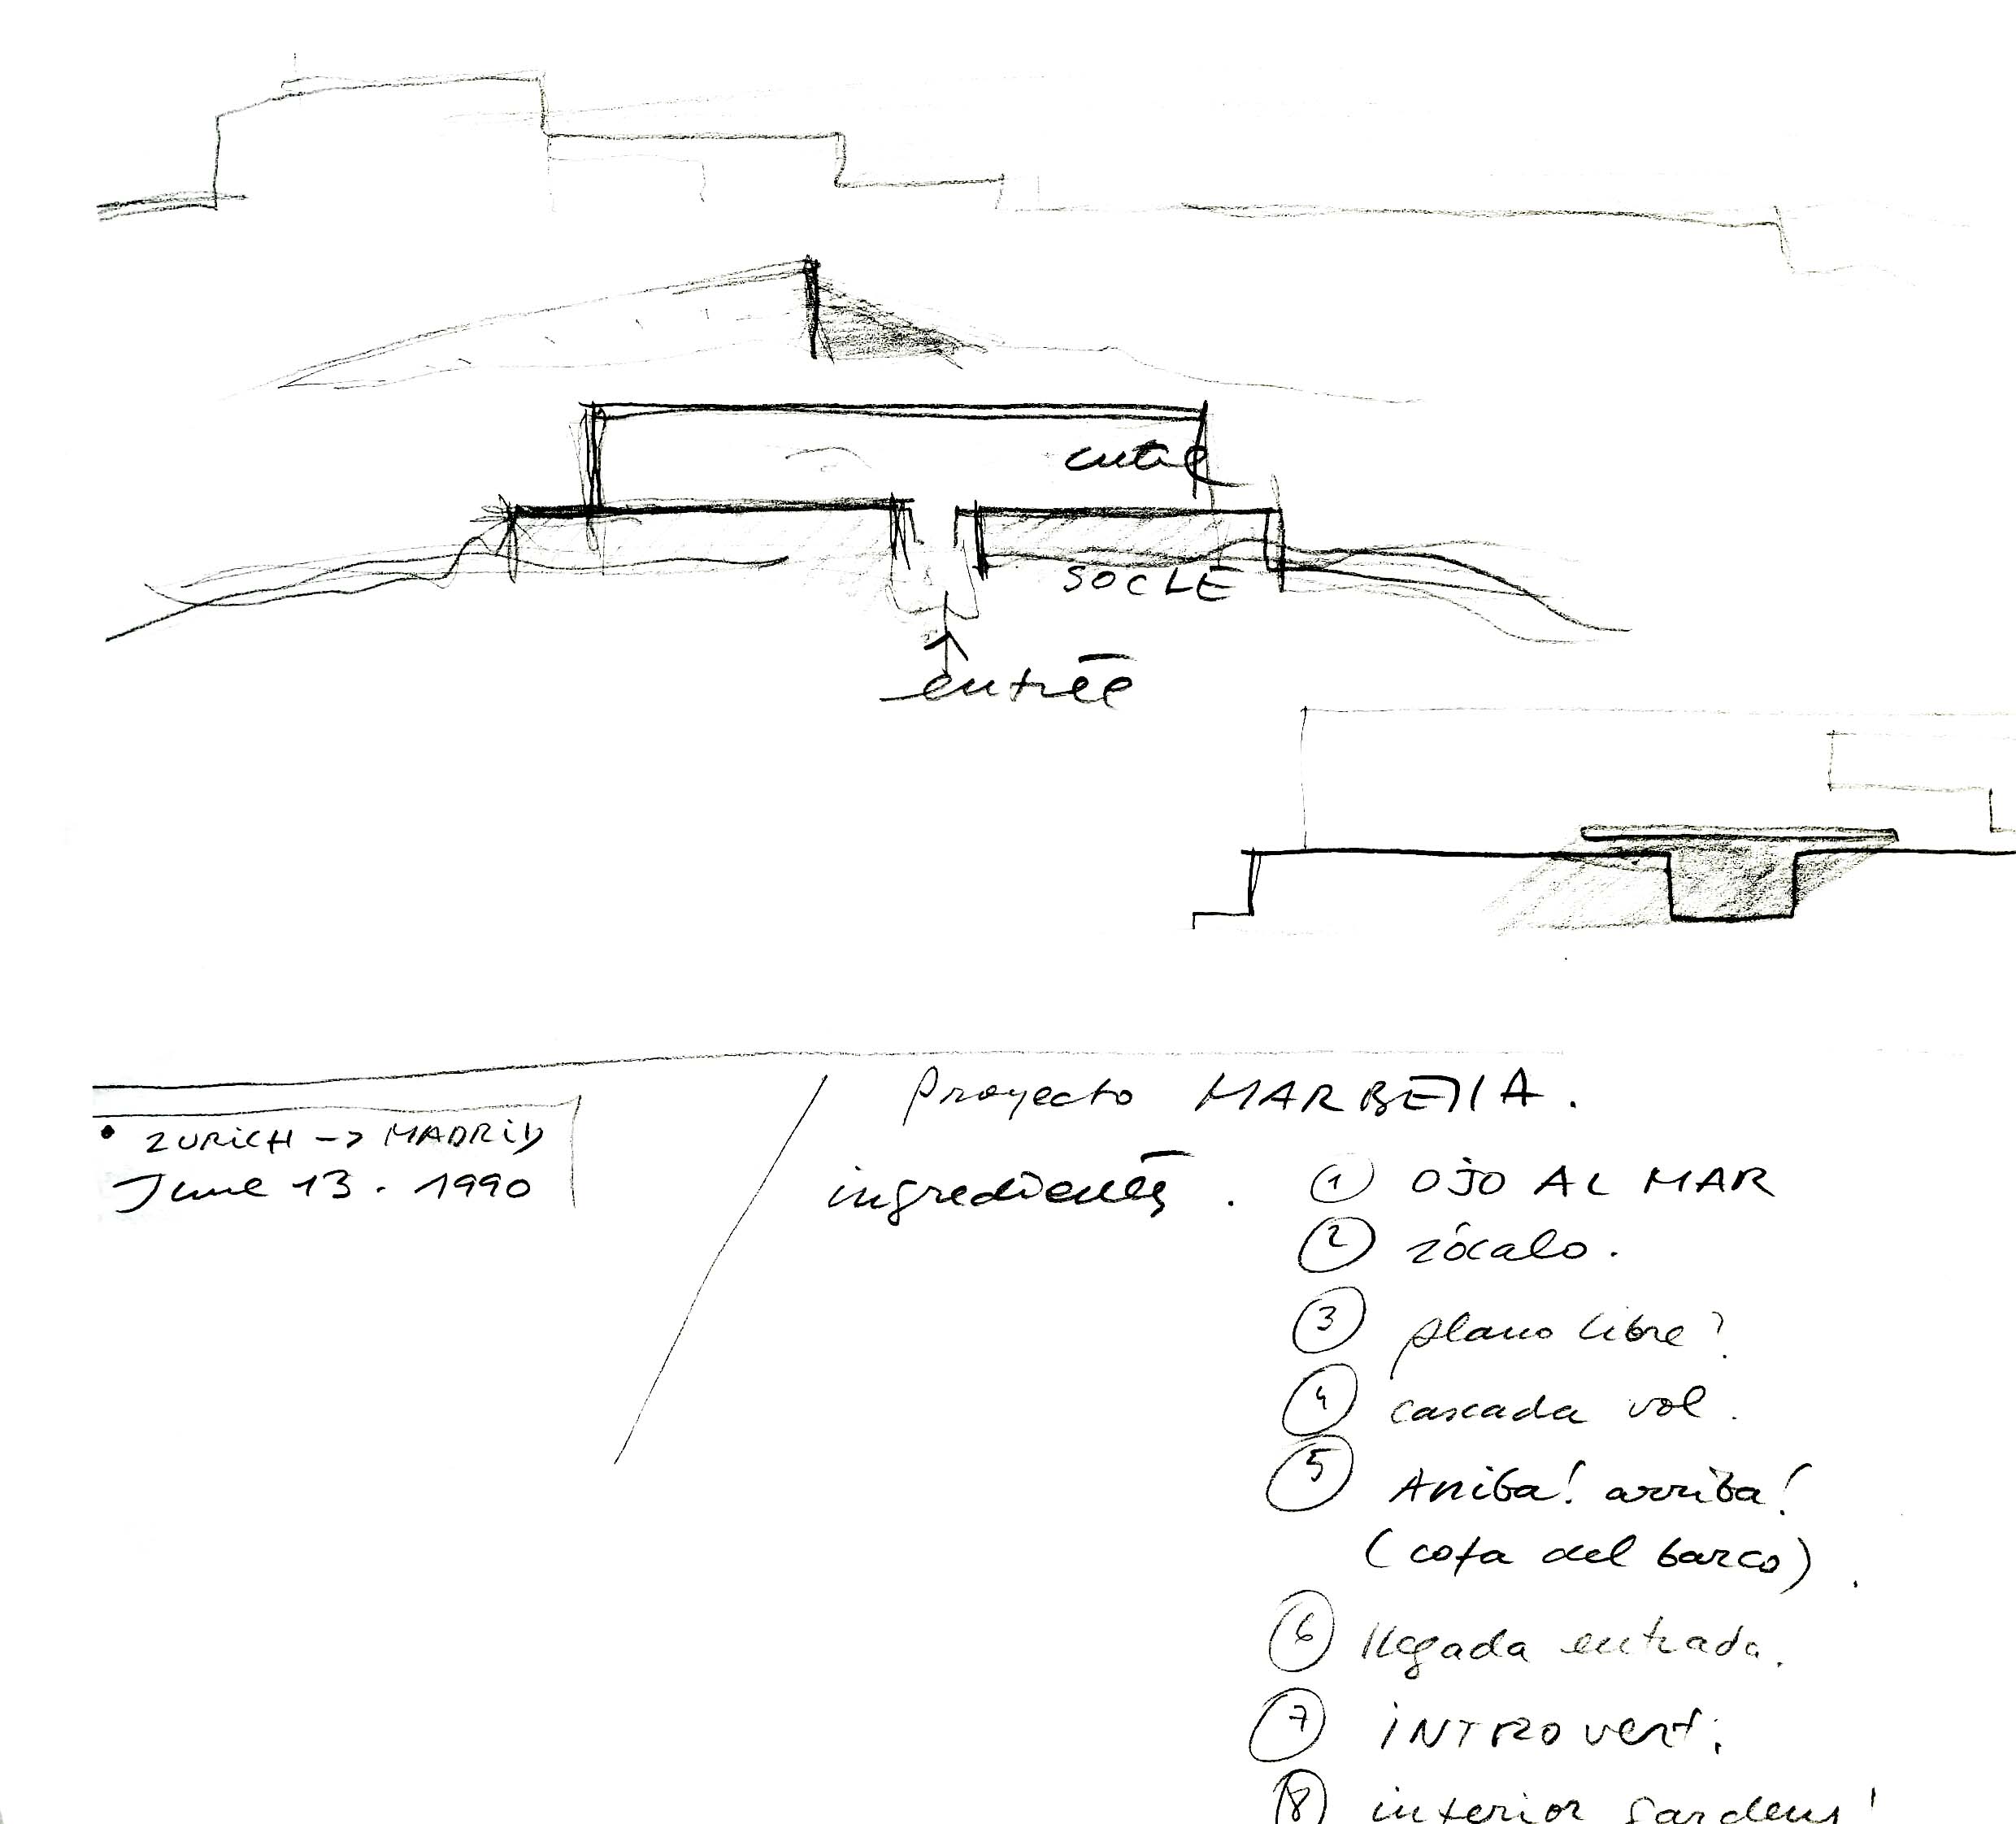 SOCLE
entrée
Proyecto MARBELLA.
• ZURICH -> MADRID
June 13. 1990
ingredientes. ① OJO AL MAR
② zócalo.
③ plano libre?
④ cascada vol.
⑤ Arriba! arriba!
(cota del barco).
⑥ llegada entrada.
⑦ INTROvert.
⑧ interior gardens!